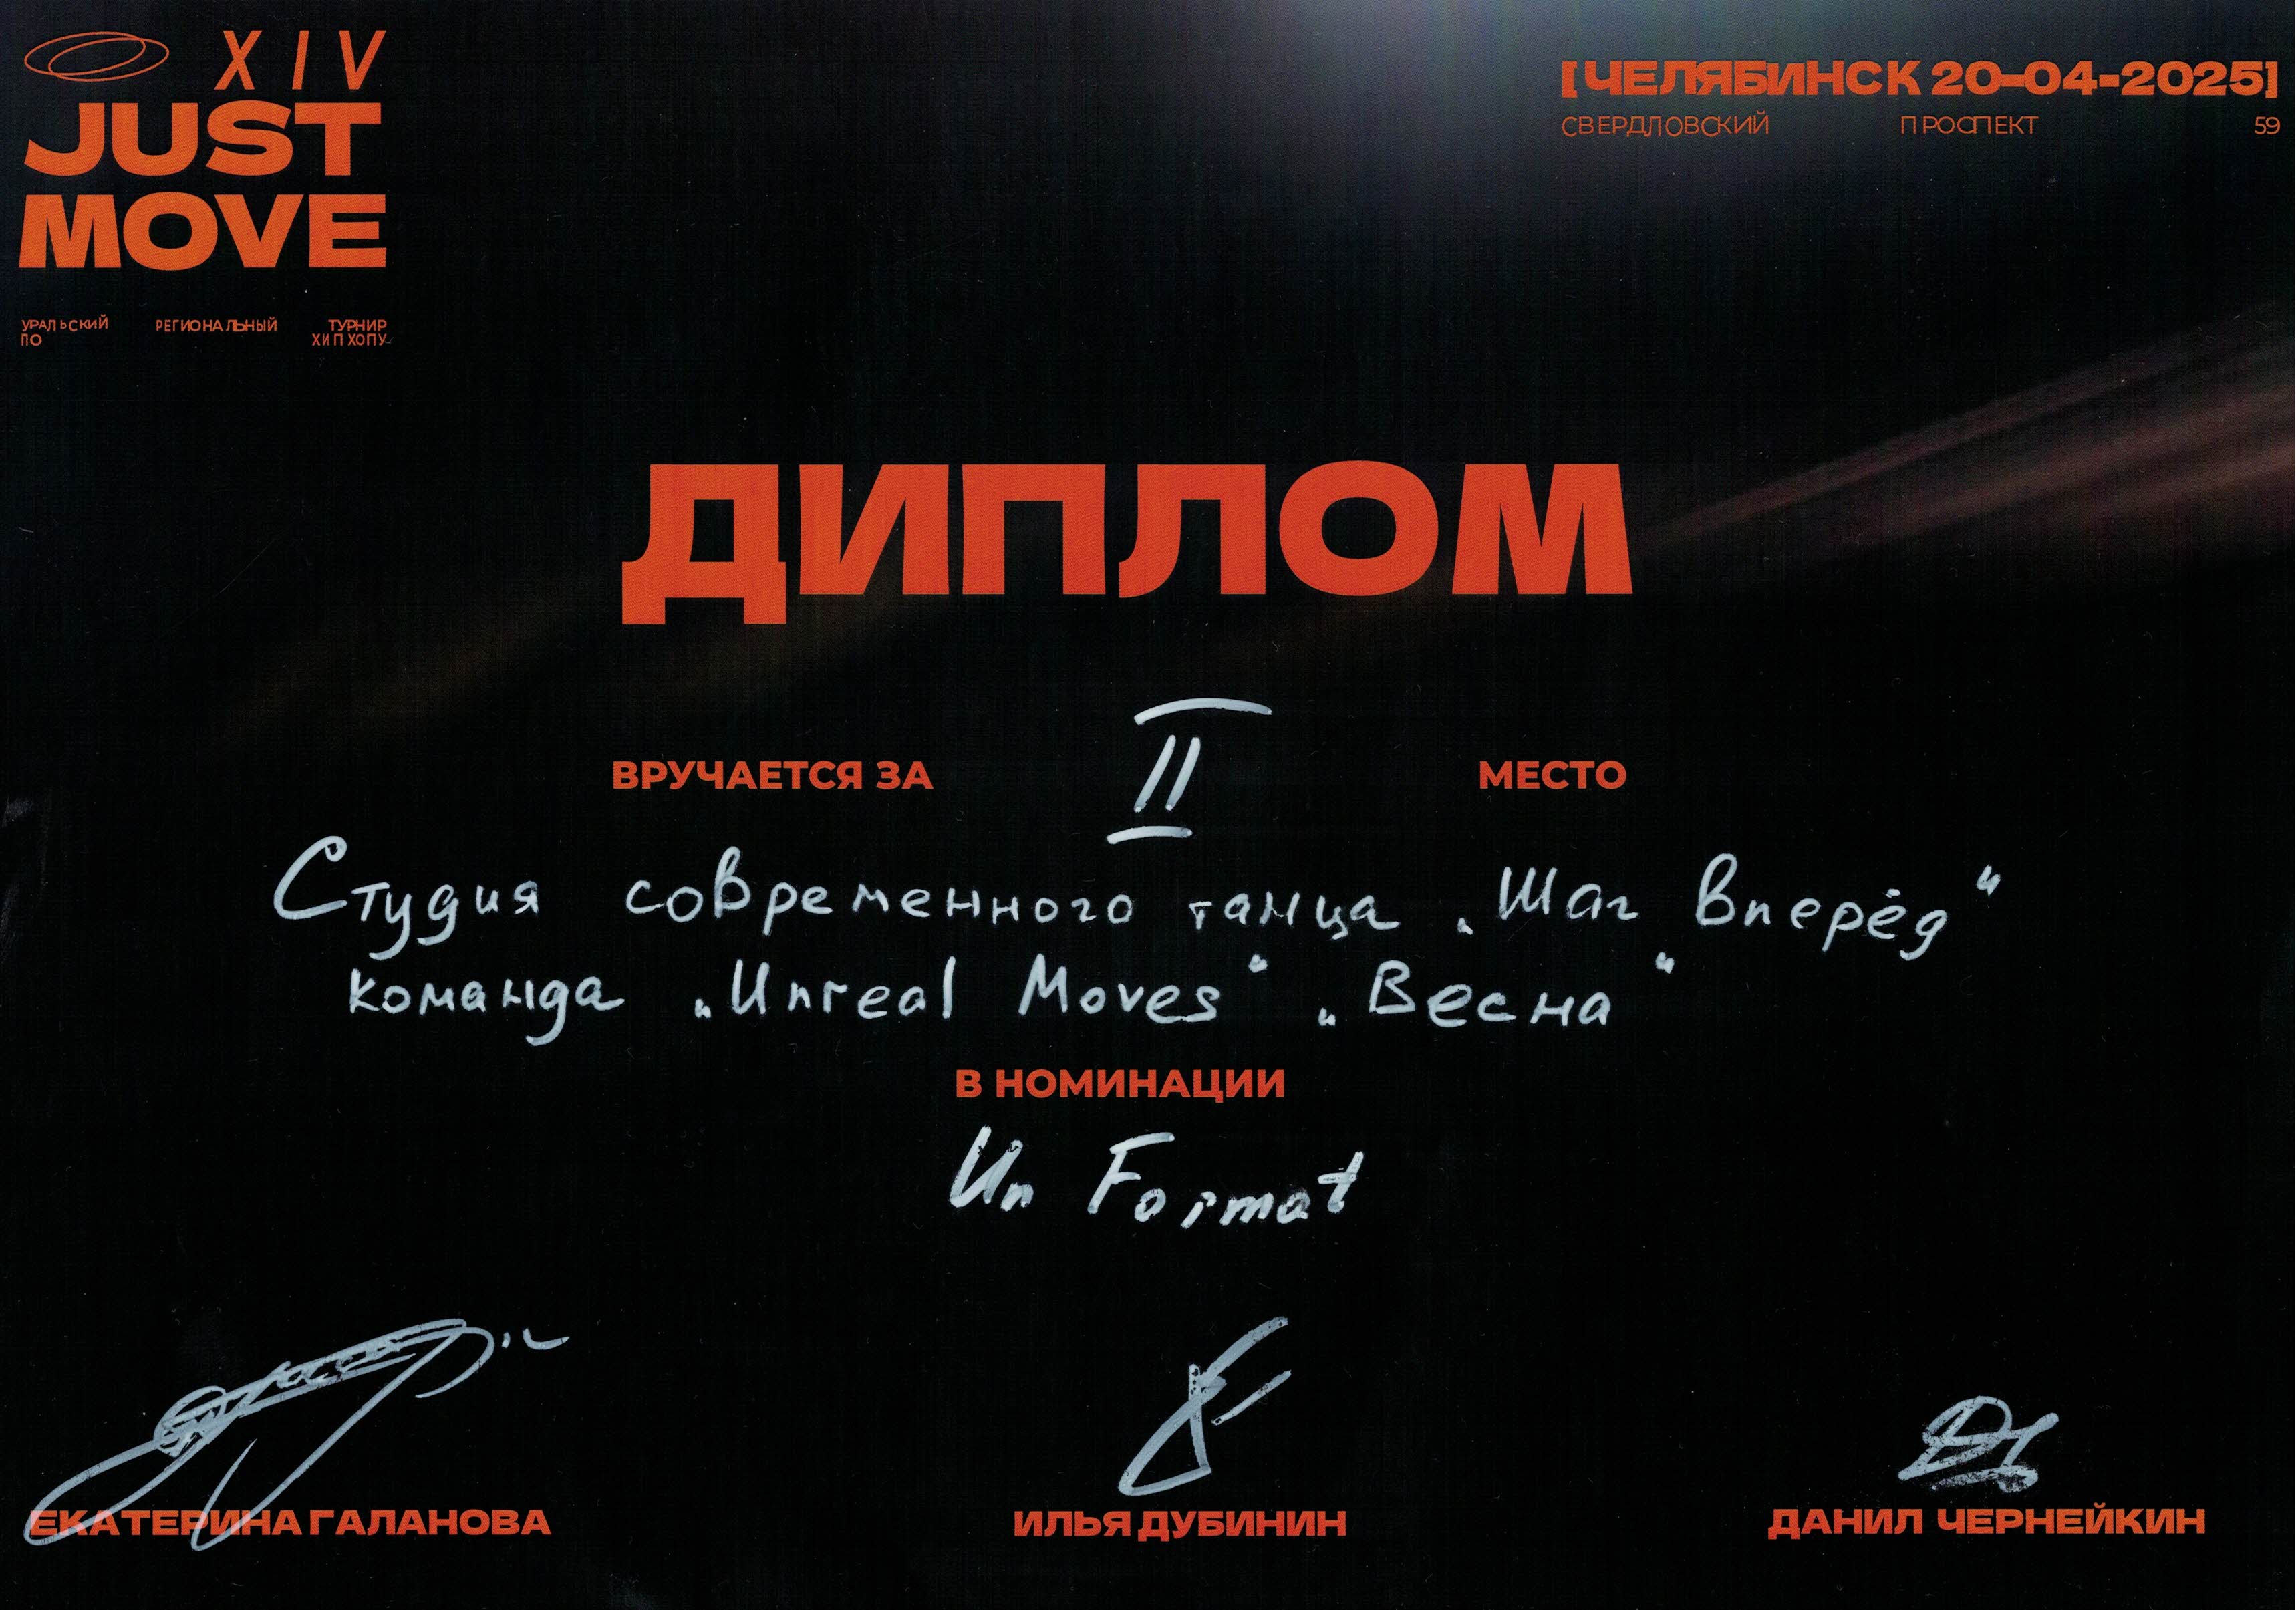 XIV
JUST
MOVE
УРАЛЬСКИЙ РЕГИОНАЛЬНЫЙ ТУРНИР
ПО ХИП ХОПУ
[ЧЕЛЯБИНСК 20-04-2025]
СВЕРДЛОВСКИЙ ПРОСПЕКТ 59
ДИПЛОМ
ВРУЧАЕТСЯ ЗА II МЕСТО
Студия современного танца „Шаг Вперёд“
команда „Unreal Moves“ „Весна“
В НОМИНАЦИИ
Un Format
ЕКАТЕРИНА ГАЛАНОВА ИЛЬЯ ДУБИНИН ДАНИЛ ЧЕРНЕЙКИН